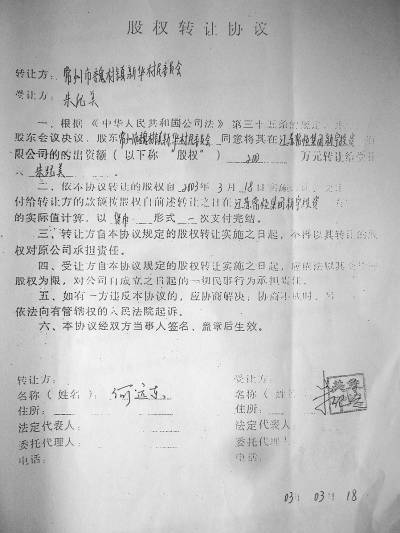 股权转让协议
转让方：常州市魏村镇新华村民委员会
受让方：朱
一、根据《中华人民共和国公司法》第三十五条的规定，
股东会议决议，股东常州市魏村镇新华村民委员会 同意将其在江苏常恒集团
限公司的的出资额（以下称“股权”） 200 万元转让给受让
朱
二、依本协议转让的股权自2003年3月18日实施转让，
付给转让方的款额按股权自前述转让之日在江苏常恒集团
的实际值计算，以 货币 形式 一次支付完结。
三、转让方自本协议规定的股权转让实施之日起，不再以其转让的股
权对原公司承担责任。
四、受让方自本协议规定的股权转让实施之日起，应依法以其
股权为限，对公司自成立之日起的一切民事行为承担责任。
五、如有一方违反本协议的，应协商解决；协商不成时，
依法向有管辖权的人民法院起诉。
六、本协议经双方当事人签名、盖章后生效。
转让方：
名称（姓名）：何远东
住所：
法定代表人：
委托代理人：
电话：
受让方：
名称（姓名
住所：
法定代表人：
委托代理人：
电话：
03年 03月 18